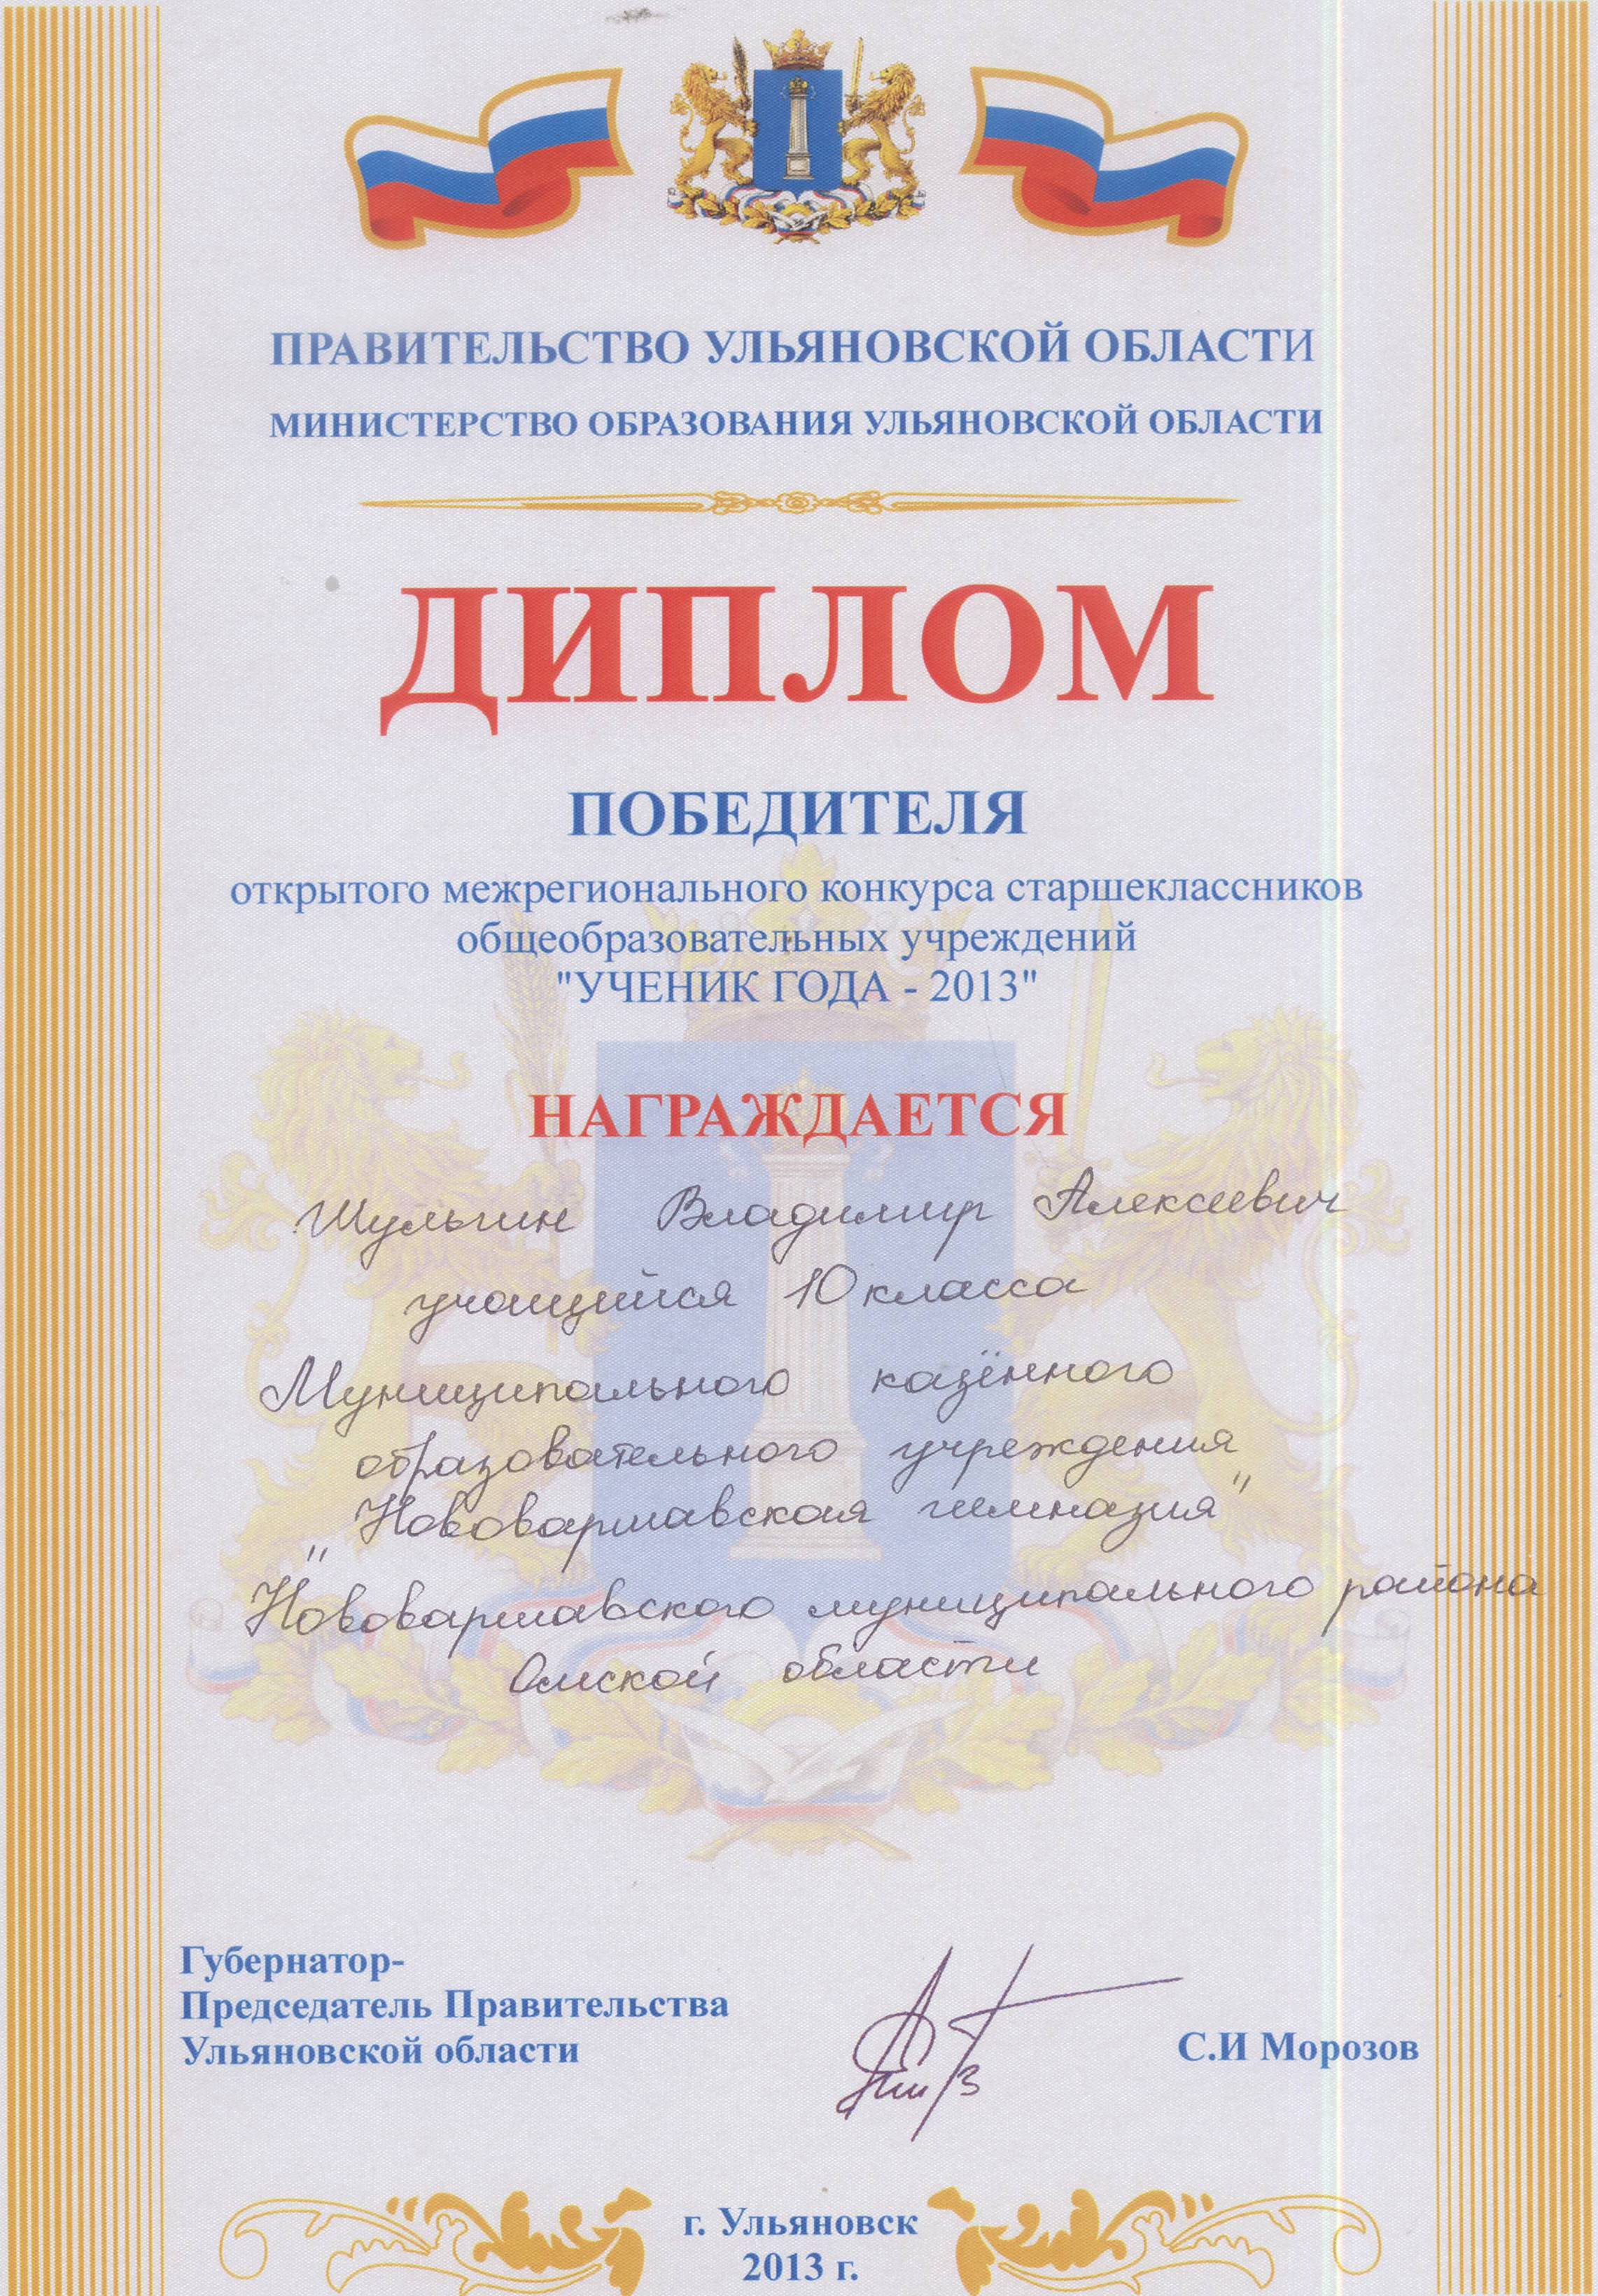 ПРАВИТЕЛЬСТВО УЛЬЯНОВСКОЙ ОБЛАСТИ
МИНИСТЕРСТВО ОБРАЗОВАНИЯ УЛЬЯНОВСКОЙ ОБЛАСТИ
ДИПЛОМ
ПОБЕДИТЕЛЯ
открытого межрегионального конкурса старшеклассников
общеобразовательных учреждений
"УЧЕНИК ГОДА - 2013"
НАГРАЖДАЕТСЯ
Шульгин Владимир Алексеевич
учащийся 10 класса
Муниципального казённого
образовательного учреждения
"Нововаршавская гимназия"
Нововаршавского муниципального района
Омской области
Губернатор-
Председатель Правительства
Ульяновской области
С.И Морозов
г. Ульяновск
2013 г.